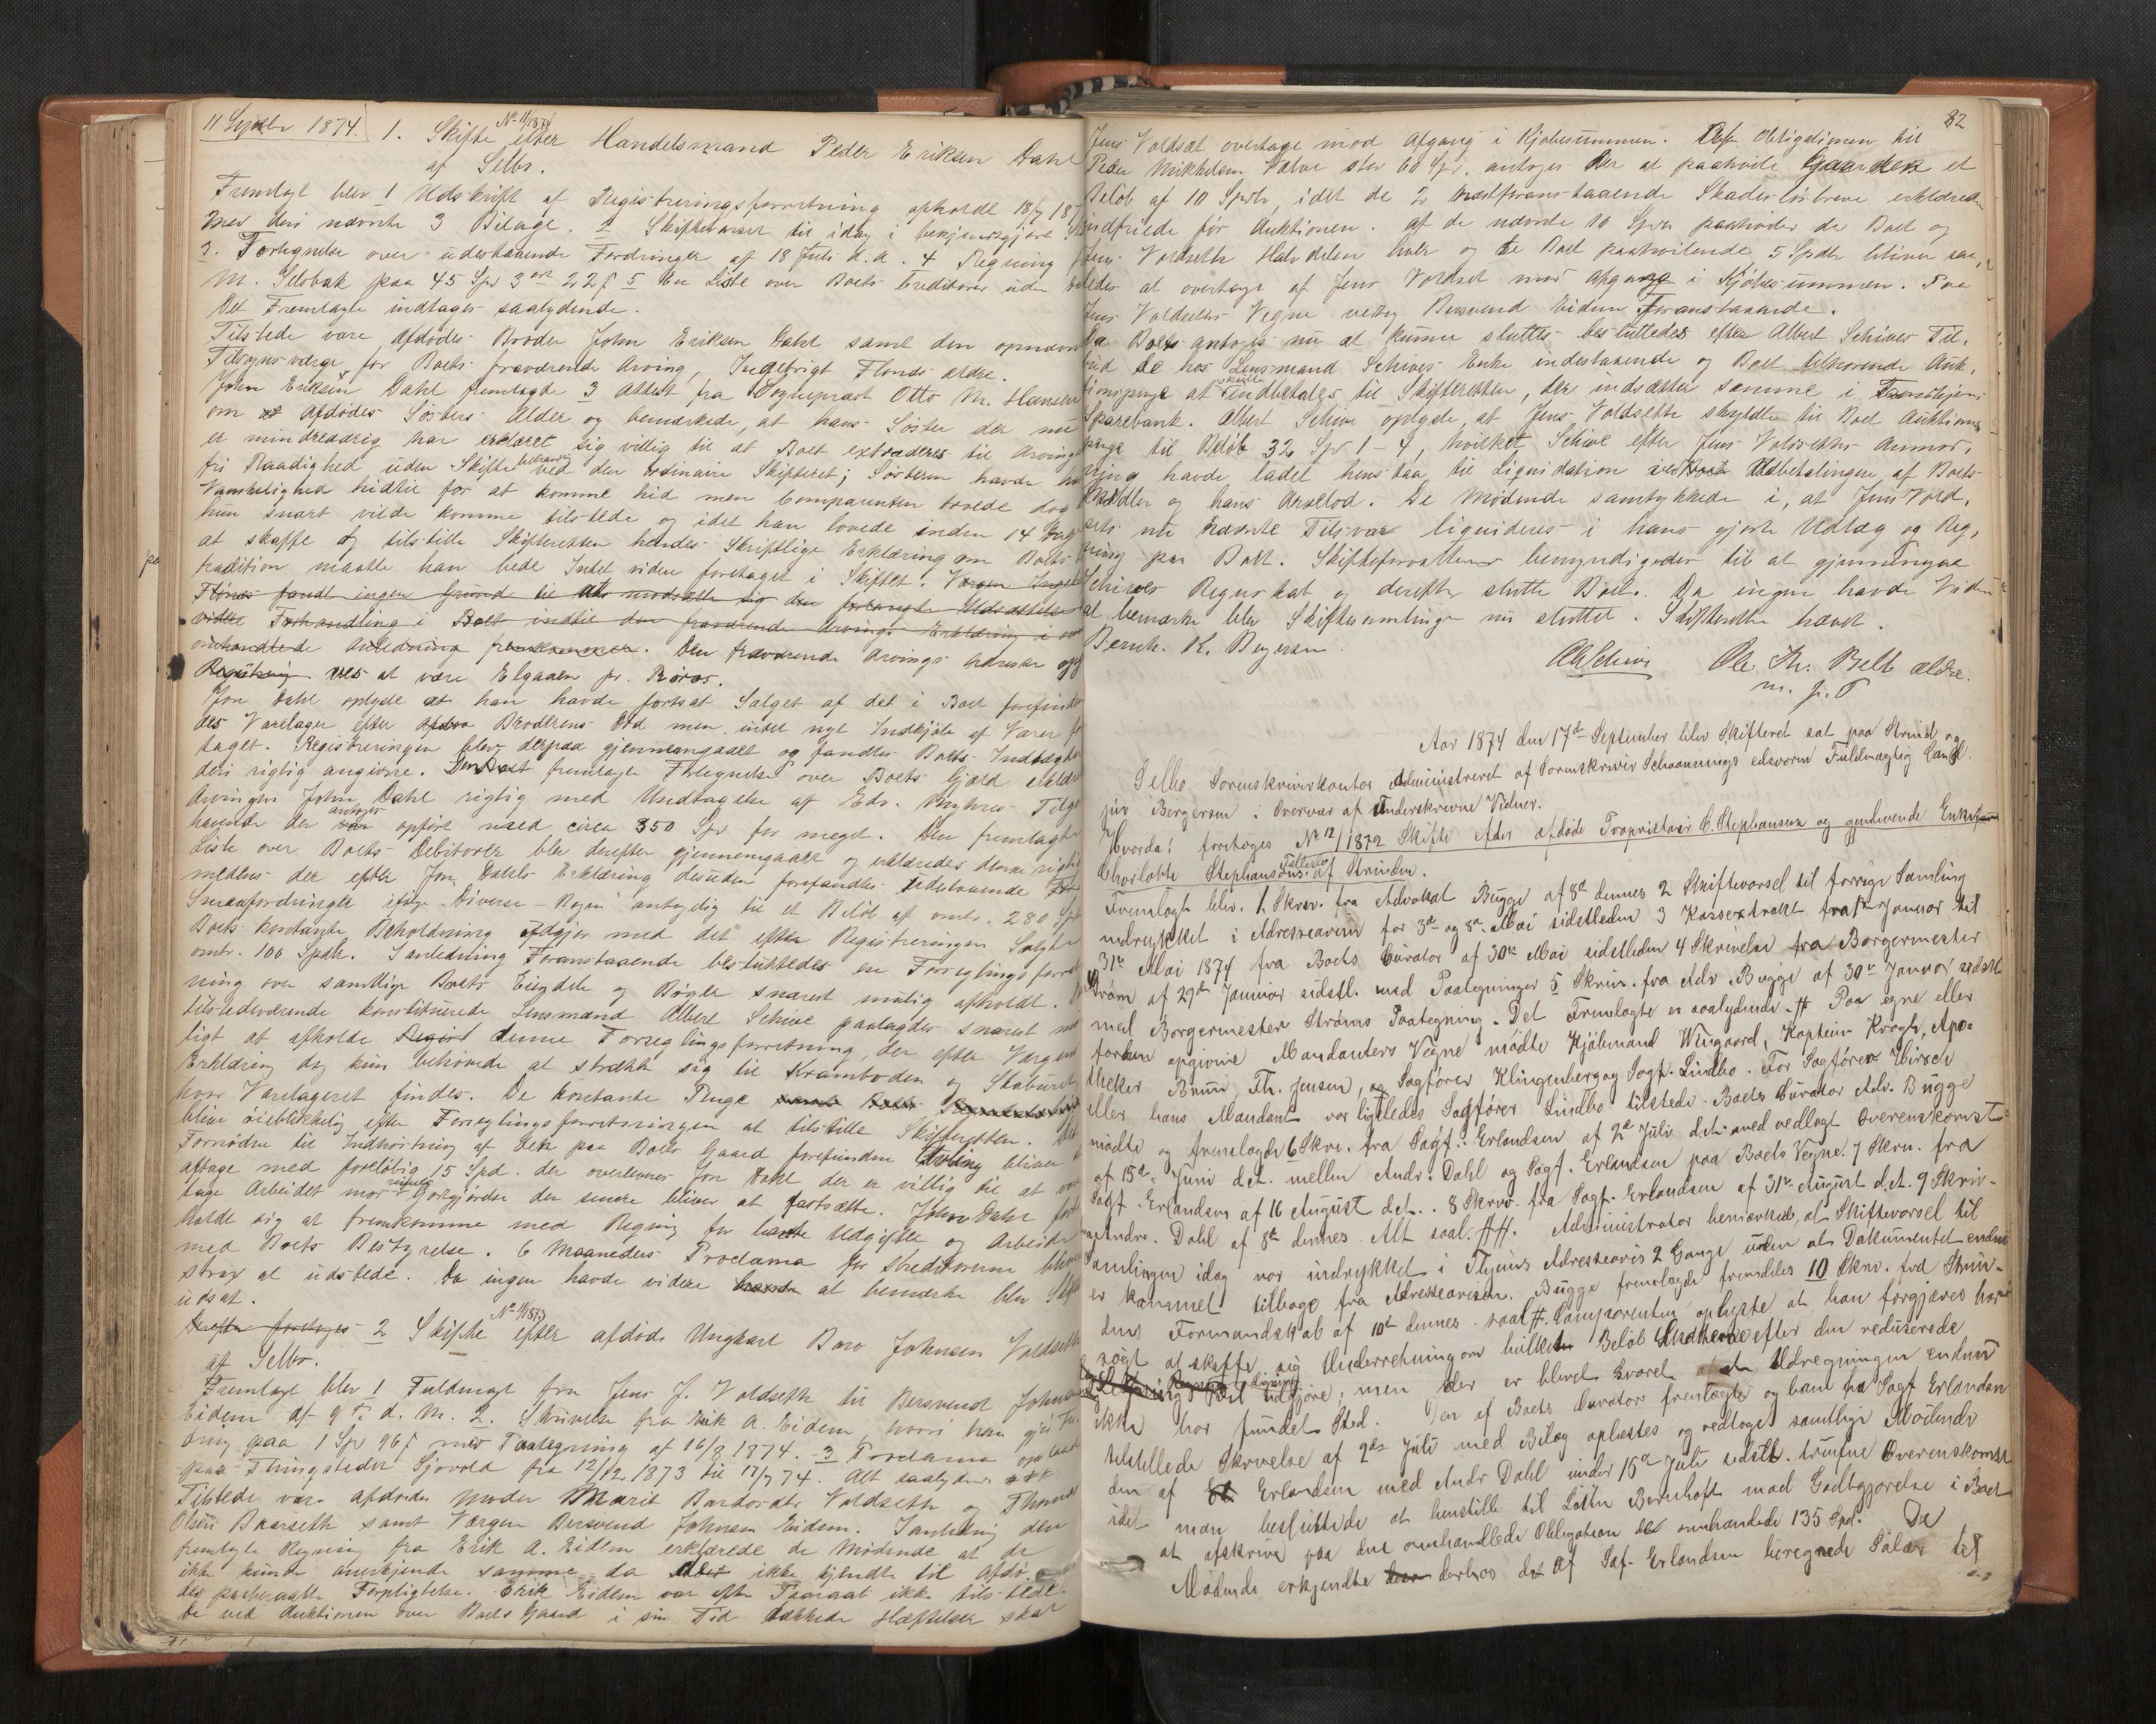 11 Septbr 1874. 1. Skifte No 11/1874 efter Handelsmand Peder Eriksen Dahl
af Selbo.
Fremlagt blev 1 Udskrift af Registreringsforretning afholdt 18/7 187
med deri nævnte 3 Bilage. 2 Skiftevarsel til idag i bekjendtgjort
3. Fortegnelse over udestaaende Fordringer af 18 Juli d.A. 4 Regning
M. Selsbak paa 45 Spd 3 ort 22 s 5 En Liste over Boets Creditorer uden
Det Fremlagte indtages saalydende.
Tilstede vare Afdødes Broder John Eriksen Dahl samt den opnævn
Tilsynsværge for Boets fraværende Arving, Ingebrigt Flønes ældre.
John Eriksen Dahl fremlagde 3 Attest fra Sogneprest Otto M. Hansen
om Afdødes Søsters Alder og bemærkede, at hans Søster der nu
er mindreaarig har erklæret sig villig til at Boet extraderes til Arving
fri Raadighed uden Skiftebehandling ved den ordinaire Skifteret; Søsteren havde
Vanskelighed hidtil for at komme hid men Comparenten troede dog
hun snart vilde komme tilstede og idet han lovede inden 14 Dage
at skaffe og tilstille Skifteretten hendes Skriftlige Erklæring om Boets
tradition maatte han bede Intet videre foretaget i Skiftet. Værgen Inge
Flønes fandt ingen Grund til at modsætte sig den forlangte Udsættelse
vidtl Forhandling i Boet indtil den fraværende Arvings Erklæring i
omhandlede Anledning fremkommer. Den fraværende Arvings Adresse
ves at være Elgaaen pr. Røros.
Jon Dahl oplyste at han havde fortsat Salget af det i Boet forefind
des Varelager efter Broderens Død men intet nyt Indkjøb af Varer
taget. Registreringen blev derpaa gjennemgaaet og fandtes Boets Indtægter
deri rigtig angivne. Den fremlagte Fortegnelse over Boets Gjæld erklær
Arvingen John Dahl rigtig med Undtagelse af Edv. Tilgo
havende der antages opført med circa 350 Spd for meget. Den fremlagte
Liste over Boets Debitorer blev derefter gjennemgaaet og erklæredes denne rigtig
medens der efter Jon Dahls Erklæring desuden forefandtes Udestaaende
Smaafordringer ifølge "Diverse-Bogen" antagelig til et Beløb af omtr. 280 Spd
Boets kontante Beholdning udgjør med det efter Registreringen Solgte
omtr. 100 Spdlr. I Anledning Foranstaaende besluttedes en Forseglingsforret
ning over samtlige Boets Eiendele og Bøger snarest mulig afholdt.
tilstedeværende konstituerede Lensmand Albert Schive paalagdes snarest
ligt at afholde denne Forseglingsforretning, der efter Værgens
Erklæring dog kun behøvede at strække sig til Kramboden og Staburet,
hvor Varelageret findes. De kontante Penge
blive øieblikkelig efter Forseglingsforretningen at tilstille Skifteretten.
Fornødne til Indhøstning af den paa Boets Gaard forefunden Avling bliver
aftage med foreløbig 15 Spd. der overlevres Jon Dahl der er villig til at
tage Arbeidet mod rimelig Godtgjørelse der senere bliver at fastsætte. John Dahl
holdt sig at fremkomme med Regning for havte Udgifter og Arbeide
med Boets Bestyrelse. 6 Maaneders Proclama for Kreditorerne bliver
strax at udstede. Da ingen havde videre at bemærke blev
udsat.
Derefter foretoges 2 Skifte No 11/1873 efter afdøde Ungkarl Baro Johnsen Voldseth
af Selbo.
Fremlagt blev 1 Fuldmagt fra Jens J. Voldseth til Bersvend Johnsen
Eidem af 9 d. M. 2. Skrivelse fra Erik A. Eidem, hvori han gjør
dring paa 1 Spd 96 s med Paategning af 16/8 1874. 3 Proclama oplæst
paa Thingstedet Sjøvold fra 12/12 1873 til 17/7 74. Alt saalydende
Tilstede vare afdødes Moder Marit Bardosdtr Voldseth og Thomas
Olsen Baarseth samt Værgen Bersvend Johnsen Eidem. I Anledning den
fremlagte Regning fra Erik A. Eidem erklærede de Mødende at de
ikke kunde anerkjende samme da ikke kjendte til Afdø
des paaberaabte Forpligtelse. Erik Eidem var efter Paaraab ikke tilstede.
De ved Auktionen over Boets Gaard i sin Tid Hæftelser skal
82
Jens Voldset overtage mod Afgang i Kjøbesummen. Obligationen til
Peder Mikkelsen Kalve stor 60 Spd. antages at paahvile Gaarden et
Beløb af 10 Spdlr, idet de 2 næstforanstaaende Skadesløsbreve erklæredes
indfriede før Auktionen. Af de nævnte 10 Spdlr paahviler de Boet og
Jens Voldseth Halvdelen hver og de Boet paahvilende 5 Spdlr bliver saa
ledes at overtage af Jens Voldset mod Afgang i Kjøbesummen. Paa
Jens Voldseths Vegne vedtog Bersvend Eidem foranstaaende.
Da Boet antages nu at kunne sluttes besluttedes efter Albert Schives Til
bud de hos Lensmand Schives Enke indestaaende og Boet tilhørende Auk
tionspenge at skulle indbetales til Skifteretten, der indsætter samme i Trondhjems
Sparebank. Albert Schive oplyste, at Jens Voldseth skyldte til Boet Auktions
penge til Beløb 32 Spd 1 - 4, hvilket Schive efter Jens Voldseths Anmod
ning havde ladet henstaa til Liquidation ved Udbetalingen af Boets
Midler og hans Arvelod. De Mødende samtykkede i, at Jens Vold
seths nu nævnte Tilsvar liquideres i hans gjorte Udlæg og Reg
ning paa Boet. Skifteforvalteren bemyndigedes til at gjennemgaa
Schives Regnskab og derefter slutte Boet. Da ingen havde Videre
at bemærke blev Skiftesamlingen nu sluttet. Skifteretten hævet.
Bernh. K. Bergersen.
A Schive Ole Th. Balk ældre.
m. p. P
Aar 1874 den 17de September blev Skifteret sat paa Strind og
Selbo Sorenskriverkontor Administreret af Sorenskriver Schaannings edsvorne Fuldmægtig Cand
jur Bergersen i Overvær af Underskrevne Vidner.
Hvorda: foretoges No 12/1872 Skifte efter afdøde Proprietær C. Stephansen og gjenlevende Enkefrue
Charlotte Stephansens Fallitbo af Strinden.
Fremlagt blev. 1. Skriv. fra Advokat Bugge af 8de dennes 2 Skiftevarsel til forrige Samling
indrykket i Adresseavisen for 3de og 8de Mai sidstleden 3 Kasseextrakt fra 1ste Januar til
31te Mai 1874 fra Boets Curator af 30te Mai sidstleden 4 Skrivelse fra Borgermester
Strøm af 29de Januar sidstl. med Paategninger 5 Skriv. fra Adv. Bugge af 30te Januar sidstl.
med Borgermester Strøms Paategning. Det Fremlagte er saalydende. # Paa egne eller
forhen opgivne Mandanters Vegne mødte Kjøbmand Wingaard, Kaptein Krogh, Apo=
theker Bruun, Fr. Jensen, og Sagfører Klingenberg og Sagf. Lindbo. For Sagfører Hirsch
eller hans Mandant var ligeledes Sagfører Lindbo tilstede. Boets Curator Adv. Bugge
mødte og fremlagde 6 Skriv. fra Sagf. Erlandsen af 2de Juli d.A. med vedlagt Overenskomst
af 15de Juni d.A. mellem Andr. Dahl og Sagf. Erlandsen paa Boets Vegne. 7 Skriv. fra
Sagf. Erlandsen af 16 August d.A. 8 Skriv. fra Sagf. Erlandsen af 31te August d.A. 9 Skriv-
Andr. Dahl af 8de dennes. Alt saal. ##. Administrator bemærkede, at Skiftevarsel til
Samlingen idag var indrykket i Throndhjems Adresseavis 2 Gange uden at Dokumentet endnu
er kommet tilbage fra Adresseavisen. Bugge fremlagde fremdeles 10 Skriv. fra Strin-
dens Formandskab af 10de dennes. saal #. Comparenten oplyste at han forgjæves havde
søgt at skaffe sig Underretning om hvilket Beløb efter den reducerede
ligning vil udgjøre, men der er blevet svaret at Udregningen endnu
ikke har fundet Sted. Den af Boets Curator fremlagte og ham fra Sagf Erlandsen
tilstillede Skrivelse af 2den Juli med Bilag oplæstes og vedtoges samtlige Mødende
den af Erlandsen med Andr Dahl under 15de Juli sidstl. trufne Overenskomst
idet man besluttede at henstille til Bernhoft mod Godtgjørelse i Boet
at afskrive paa den omhandlede Obligation det omhandlede 135 Spd. De
Mødende erkjendte derhos det af Sagf. Erlandsen beregnede Salær til